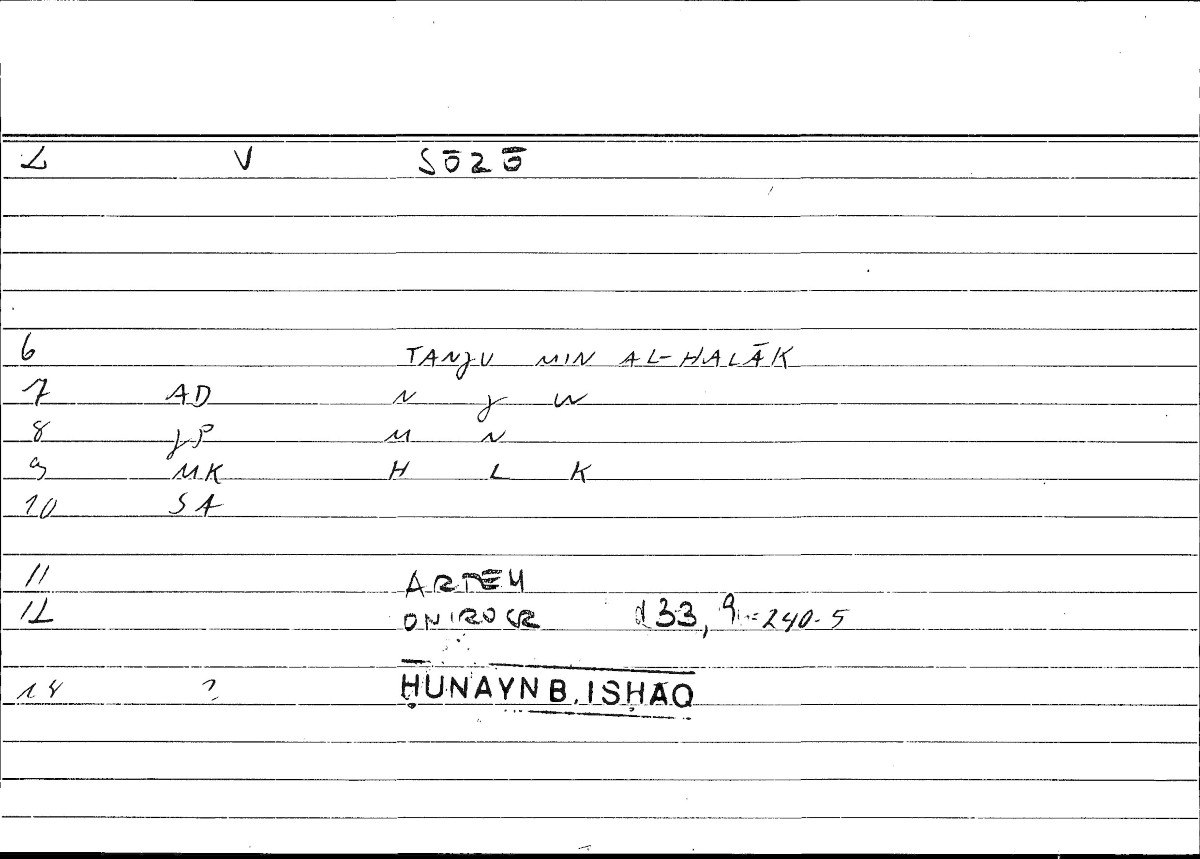 2 V SŌZŌ
6 TANJU MIN AL-HALĀK
7 AD N J W
8 JP M N
9 MK H L K
10 SA
11 ARTEM
12 ONIROCR 133, 9 = 240-5
14 ? ḤUNAYN B. ISḤĀQ